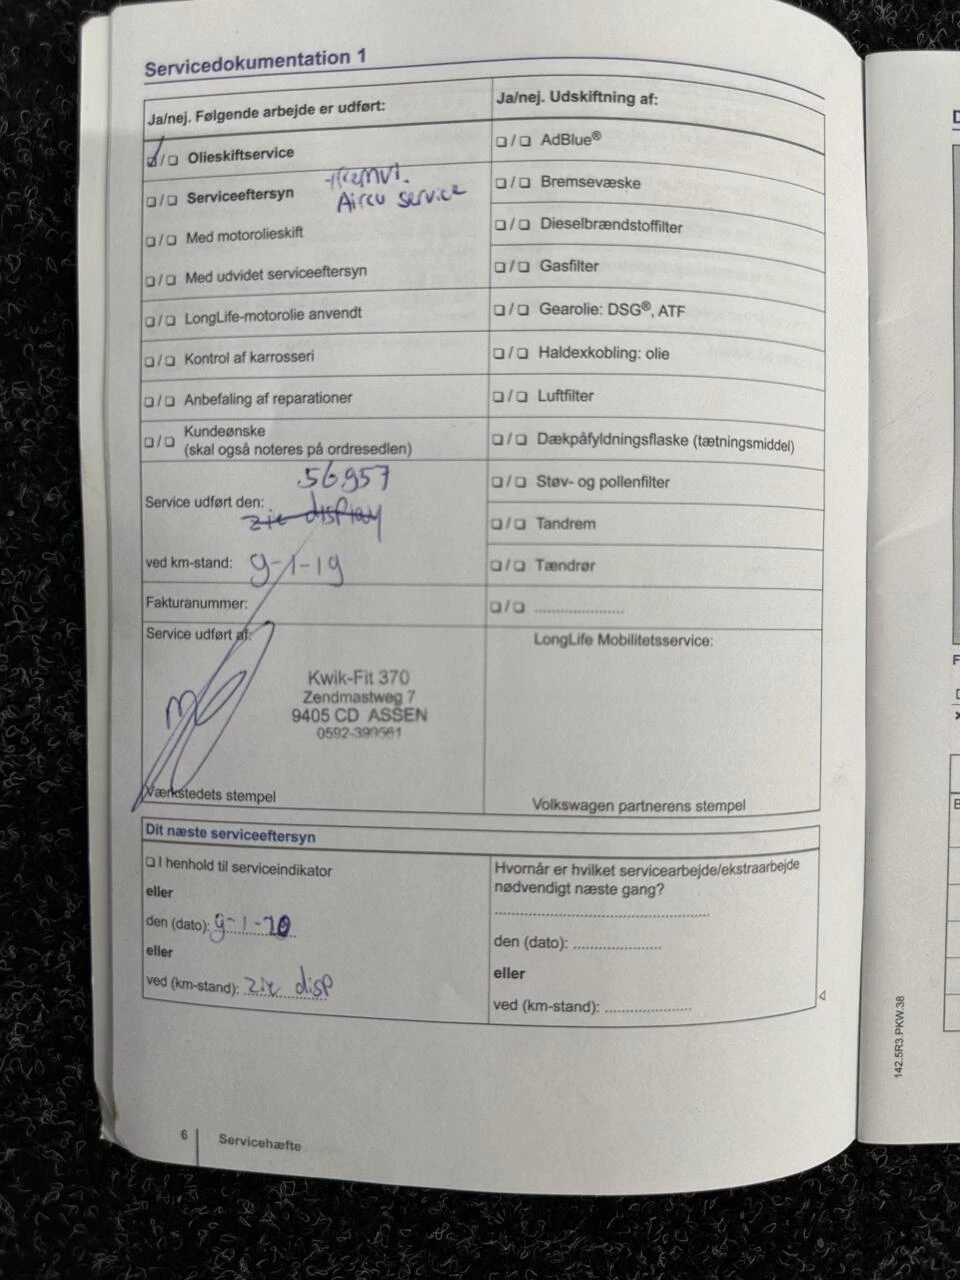 Servicedokumentation 1
Ja/nej. Følgende arbejde er udført:
❑/❑ Olieskiftservice
❑/❑ Serviceeftersyn
Airco service
❑/❑ Med motorolieskift
❑/❑ Med udvidet serviceeftersyn
❑/❑ LongLife-motorolie anvendt
❑/❑ Kontrol af karrosseri
❑/❑ Anbefaling af reparationer
❑/❑ Kundeønske
(skal også noteres på ordresedlen)
56957
Service udført den: zie display
ved km-stand: 9-1-19
Fakturanummer:
Service udført af:
Kwik-Fit 370
Zendmastweg 7
9405 CD ASSEN
Værkstedets stempel
Ja/nej. Udskiftning af:
❑/❑ AdBlue®
❑/❑ Bremsevæske
❑/❑ Dieselbrændstoffilter
❑/❑ Gasfilter
❑/❑ Gearolie: DSG®, ATF
❑/❑ Haldexkobling: olie
❑/❑ Luftfilter
❑/❑ Dækpåfyldningsflaske (tætningsmiddel)
❑/❑ Støv- og pollenfilter
❑/❑ Tandrem
❑/❑ Tændrør
❑/❑ .....................
LongLife Mobilitetsservice:
Volkswagen partnerens stempel
Dit næste serviceeftersyn
❑ I henhold til serviceindikator
eller
den (dato): 9-1-20
eller
ved (km-stand): zie disp
Hvornår er hvilket servicearbejde/ekstraarbejde
nødvendigt næste gang?
....................................................
den (dato): .....................
eller
ved (km-stand): .....................
142.5R3.PKW.38
6
Servicehæfte